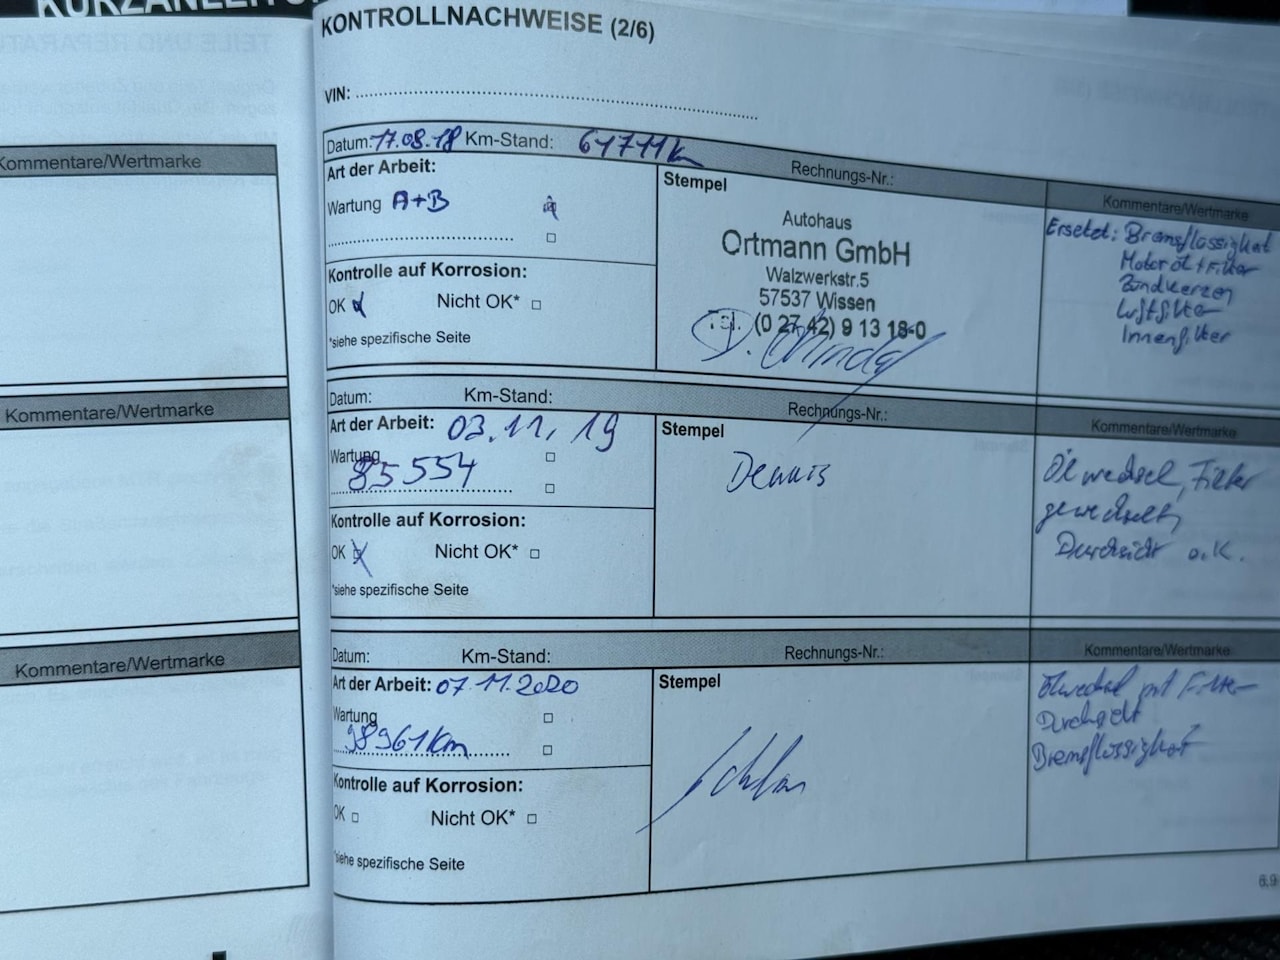 KURZANLEITUN
KONTROLLNACHWEISE (2/6)
VIN:
Kommentare/Wertmarke
Datum: 17.08.18 Km-Stand: 61711km
Rechnungs-Nr.:
Kommentare/Wertmarke
Art der Arbeit:
Wartung A+B
Kontrolle auf Korrosion:
OK Nicht OK*
*siehe spezifische Seite
Stempel
Autohaus
Ortmann GmbH
Walzwerkstr.5
57537 Wissen
Tel. (0 27 42) 9 13 18-0
Ersetzt: Bremsflüssigkeit
Motoröl + Filter
Zündkerzen
Luftfilter
Innenfilter
Kommentare/Wertmarke
Datum: Km-Stand:
Rechnungs-Nr.:
Kommentare/Wertmarke
Art der Arbeit: 03.11.19
Wartung
85554
Kontrolle auf Korrosion:
OK Nicht OK*
*siehe spezifische Seite
Stempel
Dennis
Ölwechsel, Filter
gewechselt,
Durchsicht o.K.
Kommentare/Wertmarke
Datum: Km-Stand:
Rechnungs-Nr.:
Kommentare/Wertmarke
Art der Arbeit: 07.11.2020
Wartung
98961km
Kontrolle auf Korrosion:
OK Nicht OK*
*siehe spezifische Seite
Stempel
Ölwechsel mit Filter
Durchsicht
Bremsflüssigkeit
6.9